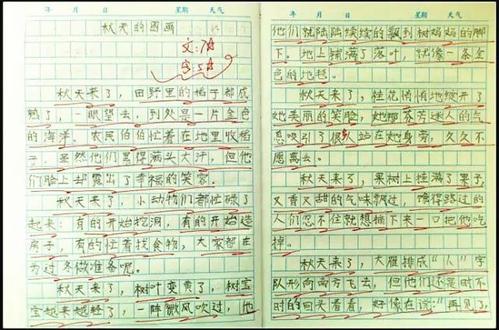 年 月 日 星期 天气
秋天的图画
文:7☆
字:5☆
秋天来了，田野里的稻子都成
熟了，一眼望去，到处是一片金色
的海洋。农民伯伯忙着在地里收稻
子，虽然他们累得满头大汗，但他
们脸上却露出了幸福的笑容。
秋天来了，小动物们都忙碌了
起来：有的开始挖洞，有的开始造
房子，有的忙着找食物，大家都在
为过冬做准备呢。
秋天来了，树叶变黄了，树宝
宝越来越轻了，一阵微风吹过，他
年 月 日 星期 天气
们就陆陆续续的飘到树妈妈的脚
下。地上铺满了落叶，就像一条金
色的地毯。
秋天来了，桂花悄悄地绽开了
她美丽的笑脸，她那芬芳迷人的气
息吸引了很多人站在她身旁，久久不
愿离去。
秋天来了，果树上挂满了果子，
又香又甜的气味飘过，馋得路过的
人们忍不住就想摘下来一口把他吃
掉。
秋天来了，大雁排成“人”字
队形向南方飞去，但他们还是时不
时的回头看看，好像在说：“再见了，